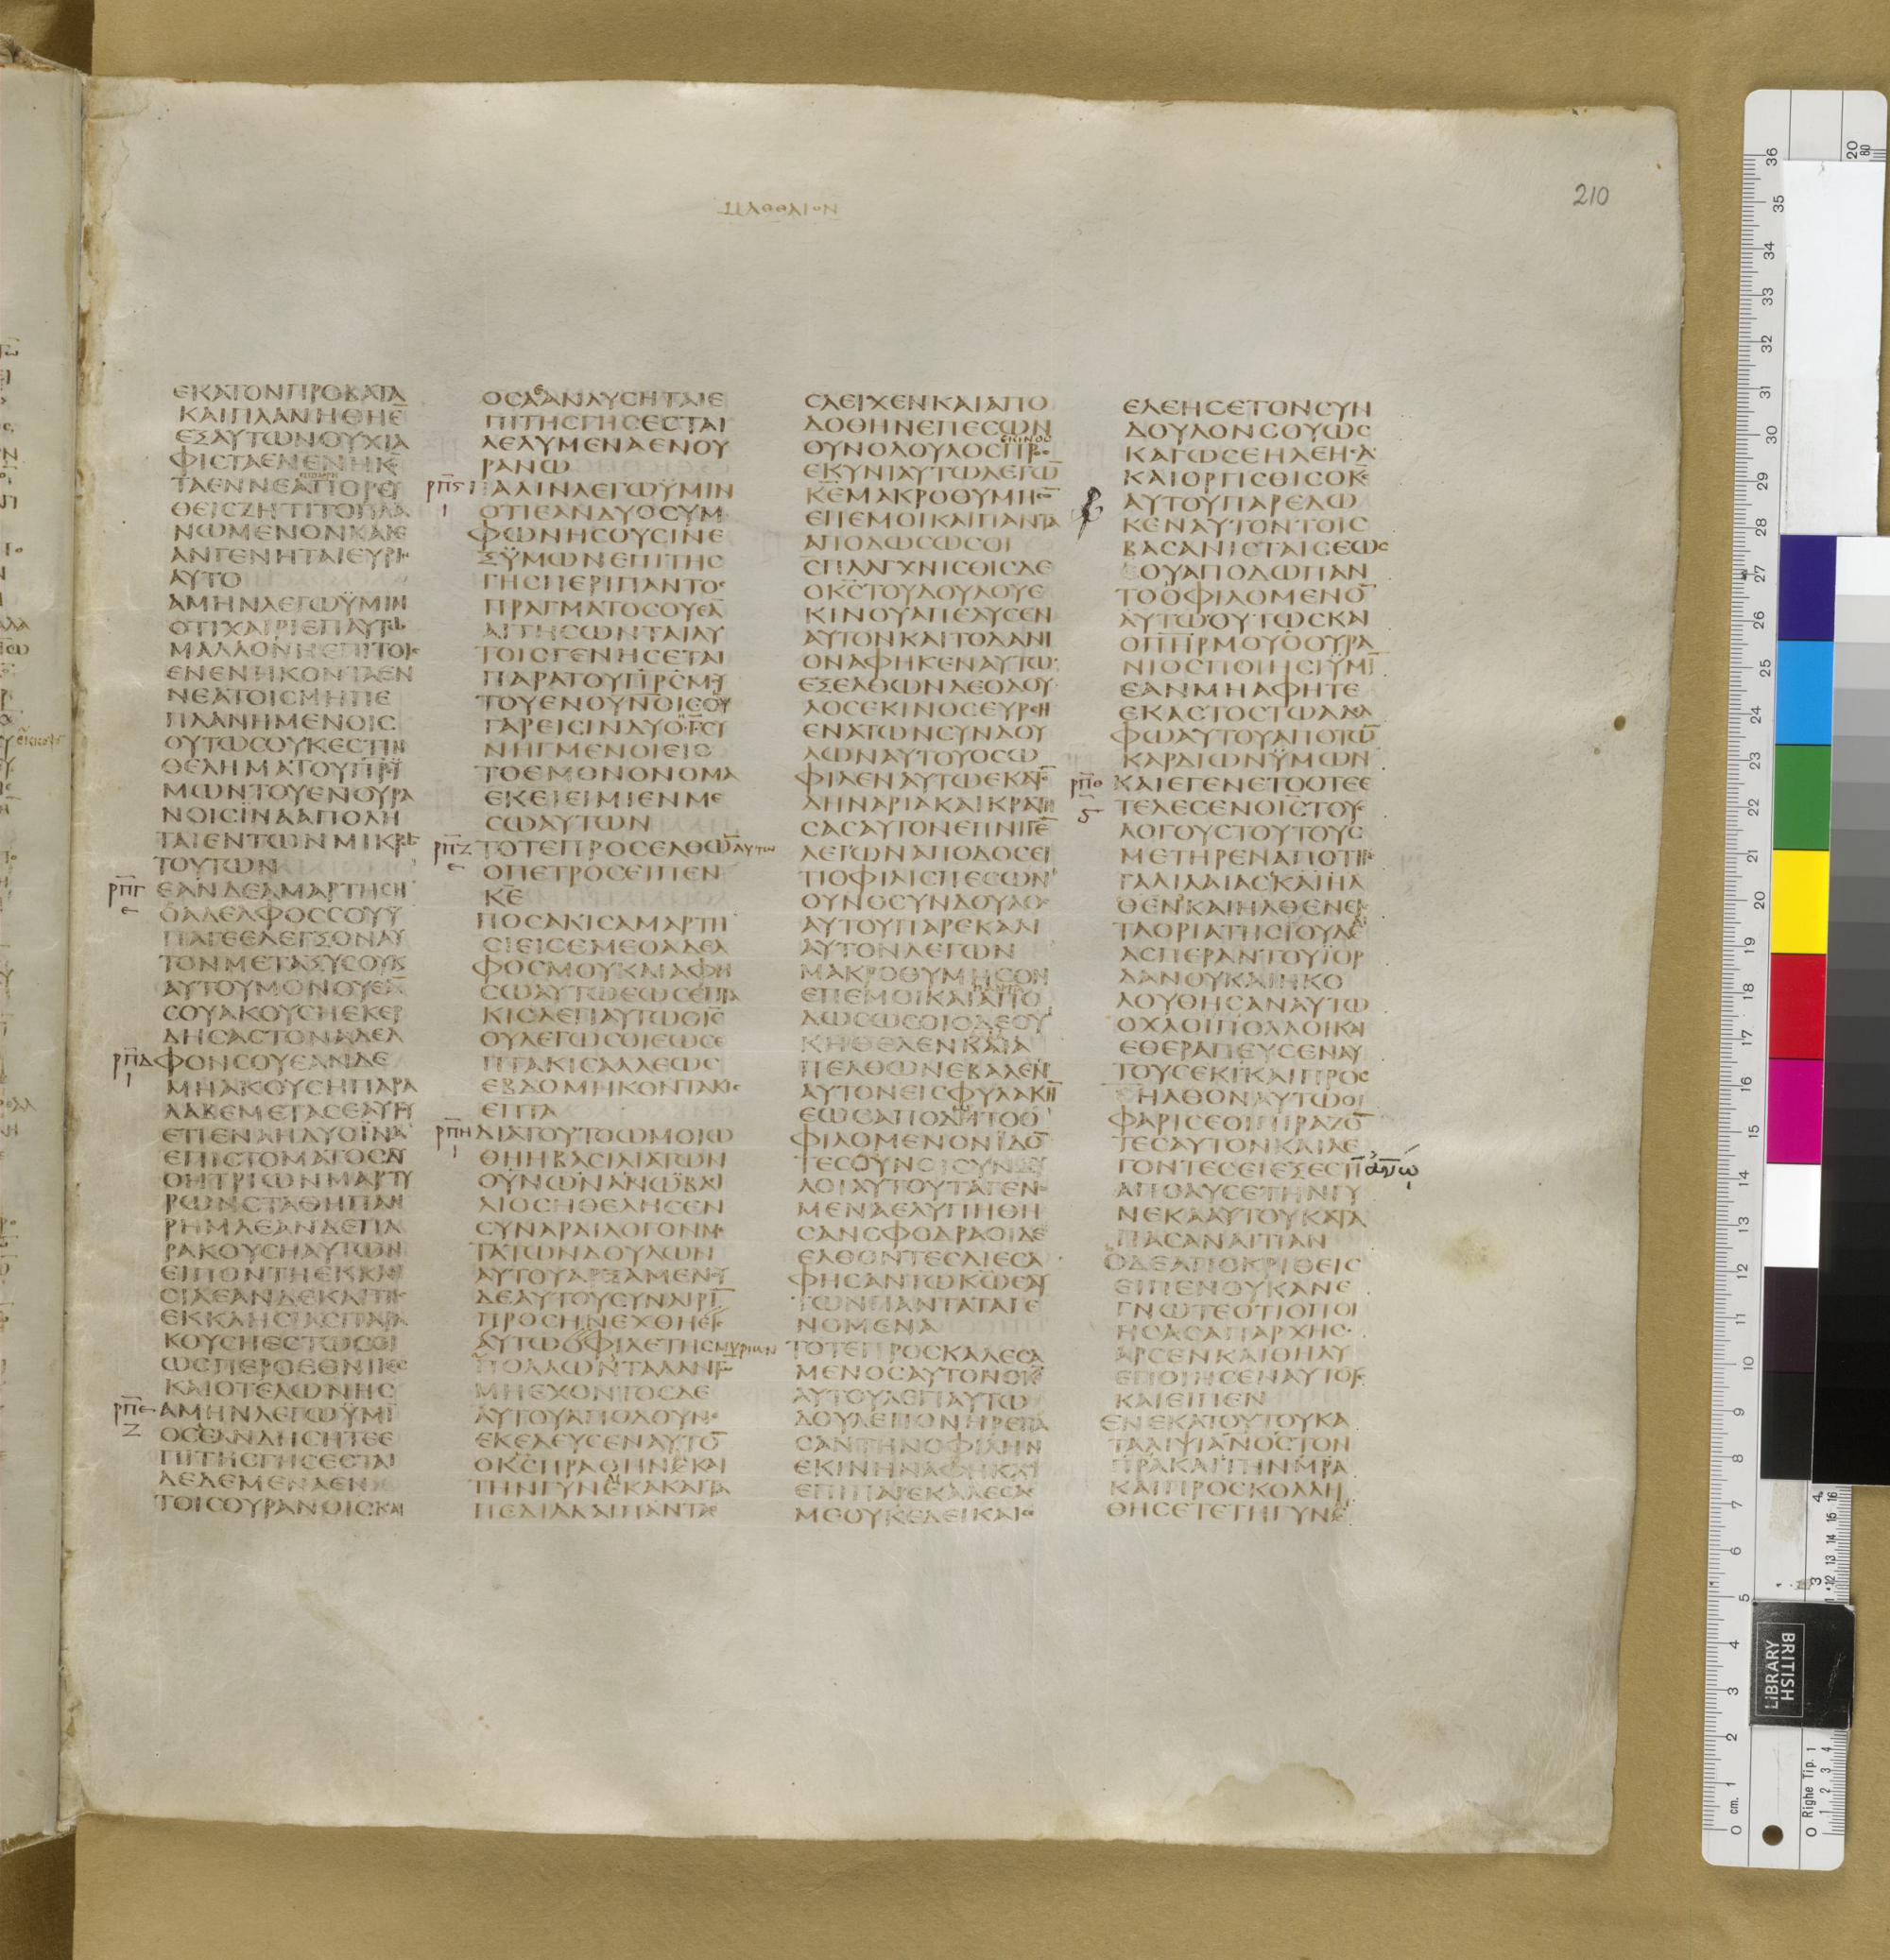 ΜΑΘΘΑΙΟΝ
210
ΕΚΑΤΟΝΠΡΟΒΑΤΑ
ΚΑΙΠΛΑΝΗΘΗΕ̅
ΕΞΑΥΤΩΝΟΥΧΙΑ
ΦΙΣΤΑΕΝΕΝΗΚΕ̅
ΑΝΓΕΝΗΤΑΙΕΥΡΙ̅
ΑΥΤΟ
ΑΜΗΝΛΕΓΩΫΜΙΝ
ΜΑΛΛΟΝΗΕΠΙΤΟΙϹ
ΕΝΕΝΗΚΟΝΤΑΕΝ
ΝΕΑΤΟΙϹΜΗΠΕ
ΠΛΑΝΗΜΕΝΟΙϹ
ΟΥΤΩϹΟΥΚΕϹΤΙΝ
ΘΕΛΗΜΑΤΟΥΠΡ̅Ϋ
ΜΩΝΤΟΥΕΝΟΥΡΑ
ΝΟΙϹΙΝΑΑΠΟΛΗ
ΤΑΙΕΝΤΩΝΜΙΚΡΩ̅
ΤΟΥΤΩΝ
ρπγ ΕΑΝΔΕΑΜΑΡΤΗϹΗ
ΟΑΔΕΛΦΟϹϹΟΥΫ
ΠΑΓΕΕΛΕΓΞΟΝΑΥ
ΤΟΝΜΕΤΑΞΥϹΟΥΚ
ΑΥΤΟΥΜΟΝΟΥΕΑ̅
ϹΟΥΑΚΟΥϹΗΕΚΕΡ
ΔΗϹΑϹΤΟΝΑΔΕΛ
ρπδ ΦΟΝϹΟΥΕΑΝΔΕ
ΜΗΑΚΟΥϹΗΠΑΡΑ
ΛΑΒΕΜΕΤΑϹΕΑΥΤΥ
ΕΤΙΕΝΑΗΔΥΟΪΝΑ
ΕΠΙϹΤΟΜΑΤΟϹΔΥ
ΟΗΤΡΙΩΝΜΑΡΤΥ
ΡΩΝϹΤΑΘΗΠΑΝ
ΡΗΜΑΕΑΝΔΕΠΑ
ΡΑΚΟΥϹΗΑΥΤΩΝ
ΕΙΠΟΝΤΗΕΚΚΛΗ
ϹΙΑΕΑΝΔΕΚΑΙΤΗϹ
ΕΚΚΛΗϹΙΑϹΠΑΡΑ
ΚΟΥϹΗΕϹΤΩϹΟΙ
ΩϹΠΕΡΟΕΘΝΙΚΟϹ
ΚΑΙΟΤΕΛΩΝΗϹ
ρπε ΑΜΗΝΛΕΓΩΫΜΙ̅
ΟϹΕΑΝΔΗϹΗΤΕΕ
ΠΙΤΗϹΓΗϹΕϹΤΑΙ
ΔΕΔΕΜΕΝΑΕΝ
ΤΟΙϹΟΥΡΑΝΟΙϹΚΑΙ
ΟϹΑΑΝΛΥϹΗΤΑΙΕ
ΠΙΤΗϹΓΗϹΕϹΤΑΙ
ΛΕΛΥΜΕΝΑΕΝΟΥ
ΡΑΝΩ
ρπϛ ΠΑΛΙΝΛΕΓΩΫΜΙΝ
ΟΤΙΕΑΝΔΥΟϹΥΜ
ΦΩΝΗϹΟΥϹΙΝΕ
ΞΫΜΩΝΕΠΙΤΗϹ
ΓΗϹΠΕΡΙΠΑΝΤΟϹ
ΠΡΑΓΜΑΤΟϹΟΥΕΑ̅
ΑΙΤΗϹΩΝΤΑΙΑΥ
ΤΟΙϹΓΕΝΗϹΕΤΑΙ
ΠΑΡΑΤΟΥΠΡ̅ϹΜΥ
ΤΟΥΕΝΟΥΝΟΙϹΟΥ
ΓΑΡΕΙϹΙΝΔΥΟΗΤϹΥ
ΝΗΓΜΕΝΟΙΕΙϹ
ΤΟΕΜΟΝΟΝΟΜΑ
ΕΚΕΙΕΙΜΙΕΝΜΕ
ϹΩΑΥΤΩΝ
ρπζ ΤΟΤΕΠΡΟϹΕΛΘΩ̅ ΑΥΤΩ
ΟΠΕΤΡΟϹΕΙΠΕΝ
Κ̅Ε̅
ΠΟϹΑΚΙϹΑΜΑΡΤΗ
ϹΙΕΙϹΕΜΕΟΑΔΕΛ
ΦΟϹΜΟΥΚΑΙΑΦΗ
ϹΩΑΥΤΩΕΩϹΕΠΤΑ
ΚΙϹΛΕΓΙΑΥΤΩΟΙ̅Ϲ̅
ΟΥΛΕΓΩϹΟΙΕΩϹΕ
ΠΤΑΚΙϹΑΛΛΕΩϹ
ΕΒΔΟΜΗΚΟΝΤΑΚΙϹ
ΕΠΤΑ
ρπη ΔΙΑΤΟΥΤΟΩΜΟΙΩ
ΘΗΗΒΑϹΙΛΙΑΤΩΝ
ΟΥΝΩΝΑΝΩΒΑϹΙ
ΛΙΟϹΗΘΕΛΗϹΕΝ
ϹΥΝΑΡΑΙΛΟΓΟΝΜΕ
ΤΑΤΩΝΔΟΥΛΩΝ
ΑΥΤΟΥΑΡΞΑΜΕΝΥ
ΔΕΑΥΤΟΥϹΥΝΑΙΡΙ̅
ΠΡΟϹΗΝΕΧΘΗΕΙϹ
ΑΥΤΩΟΦΙΛΕΤΗϹ ΜΥΡΙΩΝ
ΠΟΛΛΩΝΤΑΛΑΝΤΩ̅
ΜΗΕΧΟΝΤΟϹΔΕ
ΑΥΤΟΥΑΠΟΔΟΥΝΑΙ
ΕΚΕΛΕΥϹΕΝΑΥΤΟ̅
ΟΚ̅Ϲ̅ΠΡΑΘΗΝΕΚΑΙ
ΤΗΝΓΥΝΕΚΑΚΑΙΤΑ
ΠΕΔΙΑΚΑΙΠΑΝΤΑΟ
ϹΑΕΙΧΕΝΚΑΙΑΠΟ
ΔΟΘΗΝΕΠΕϹΩΝ
ΟΥΝΟΔΟΥΛΟϹ ΕΚΙΝΟϹ ΠΡΟϹ
ΕΚΥΝΙΑΥΤΩΛΕΓΩ̅
Κ̅Ε̅ΜΑΚΡΟΘΥΜΗϹΟ̅
ΕΠΕΜΟΙΚΑΙΠΑΝΤΑ
ΑΠΟΔΩϹΩϹΟΙ
ϹΠΛΑΓΧΝΙϹΘΙϹΔΕ
ΟΚ̅Ϲ̅ΤΟΥΔΟΥΛΟΥΕ
ΚΙΝΟΥΑΠΕΛΥϹΕΝ
ΑΥΤΟΝΚΑΙΤΟΔΑΝΙ
ΟΝΑΦΗΚΕΝΑΥΤΩ
ΕΞΕΛΘΩΝΔΕΟΔΟΥ
ΛΟϹΕΚΙΝΟϹΕΥΡΕΝ
ΕΝΑΤΩΝϹΥΝΔΟΥ
ΛΩΝΑΥΤΟΥΟϹΩ
ΦΙΛΕΝΑΥΤΩΕΚΑΤΟ̅
ΔΗΝΑΡΙΑΚΑΙΚΡΑΤΗ
ϹΑϹΑΥΤΟΝΕΠΝΙΓΕ̅
ΛΕΓΩΝΑΠΟΔΟϹΕΙ
ΤΙΟΦΙΛΙϹΠΕϹΩΝ
ΟΥΝΟϹΥΝΔΟΥΛΟϹ
ΑΥΤΟΥΠΑΡΕΚΑΛΙ
ΑΥΤΟΝΛΕΓΩΝ
ΜΑΚΡΟΘΥΜΗϹΟΝ
ΕΠΕΜΟΙΚΑΙ ΠΑΝΤΑ ΑΠΟ
ΔΩϹΩϹΟΙΟΔΕΟΥ
ΚΗΘΕΛΕΝΚΑΙΑ
ΠΕΛΘΩΝΕΒΑΛΕΝ
ΑΥΤΟΝΕΙϹΦΥΛΑΚΗ̅
ΕΩϹΑΠΟΔΩΤΟΟ
ΦΙΛΟΜΕΝΟΝΪΔΟ̅
ΤΕϹΟΥΝΟΙϹΥΝΔΟΥ
ΛΟΙΑΥΤΟΥΤΑΓΕΝΟ
ΜΕΝΑΕΛΥΠΗΘΗ
ϹΑΝϹΦΟΔΡΑΟΙΔΕ
ΕΛΘΟΝΤΕϹΔΙΕϹΑ
ΦΗϹΑΝΤΩΚΩΕΑΥ
ΤΩΝΠΑΝΤΑΤΑΓΕ
ΝΟΜΕΝΑ
ΤΟΤΕΠΡΟϹΚΑΛΕϹΑ
ΜΕΝΟϹΑΥΤΟΝΟΚ̅Ϲ̅
ΑΥΤΟΥΛΕΓΙΑΥΤΩ
ΔΟΥΛΕΠΟΝΗΡΕΠΑ
ϹΑΝΤΗΝΟΦΙΛΗΝ
ΕΚΙΝΗΝΑΦΗΚΑϹΙ
ΕΠΙΠΑΡΕΚΑΛΕϹΑϹ
ΜΕΟΥΚΕΔΕΙΚΑΙϹΕ
ΕΛΕΗϹΕΤΟΝϹΥΝ
ΔΟΥΛΟΝϹΟΥΩϹ
ΚΑΓΩϹΕΗΛΕΗϹΑ
ΚΑΙΟΡΓΙϹΘΙϹΟΚ̅Ϲ̅
ΑΥΤΟΥΠΑΡΕΔΩ
ΚΕΝΑΥΤΟΝΤΟΙϹ
ΒΑϹΑΝΙϹΤΑΙϹΕΩϹ
ΟΥΑΠΟΔΩΠΑΝ
ΤΟΟΦΙΛΟΜΕΝΟ̅
ΑΥΤΩΟΥΤΩϹΚΑΙ
ΟΠ̅Η̅Ρ̅ΜΟΥΟΟΥΡΑ
ΝΙΟϹΠΟΙΗϹΙΫΜΙ̅
ΕΑΝΜΗΑΦΗΤΕ
ΕΚΑϹΤΟϹΤΩΑΔΕΛ
ΦΩΑΥΤΟΥΑΠΟΤΩ̅
ΚΑΡΔΙΩΝΫΜΩΝ
ρπθ ΚΑΙΕΓΕΝΕΤΟΟΤΕΕ
ΤΕΛΕϹΕΝΟΙ̅Ϲ̅ΤΟΥϹ
ΛΟΓΟΥϹΤΟΥΤΟΥϹ
ΜΕΤΗΡΕΝΑΠΟΤΗϹ
ΓΑΛΙΛΑΙΑϹΚΑΙΗΛ
ΘΕΝΚΑΙΗΛΘΕΝΕΙϹ
ΤΑΟΡΙΑΤΗϹΪΟΥΔΑΙ
ΑϹΠΕΡΑΝΤΟΥΪΟΡ
ΔΑΝΟΥΚΑΙΗΚΟ
ΛΟΥΘΗϹΑΝΑΥΤΩ
ΟΧΛΟΙΠΟΛΛΟΙΚΑΙ
ΕΘΕΡΑΠΕΥϹΕΝΑΥ
ΤΟΥϹΕΚΙΚΑΙΠΡΟϹ
ΗΛΘΟΝΑΥΤΩΟΙ
ΦΑΡΙϹΕΟΙΠΙΡΑΖΟ̅
ΤΕϹΑΥΤΟΝΚΑΙΛΕ
ΓΟΝΤΕϹΕΙΕΞΕϹΤΙ̅ ἀνω
ΑΠΟΛΥϹΕΤΗΝΓΥ
ΝΕΚΑΑΥΤΟΥΚΑΤΑ
ΠΑϹΑΝΑΙΤΙΑΝ
ΟΔΕΑΠΟΚΡΙΘΕΙϹ
ΕΙΠΕΝΟΥΚΑΝΕ
ΓΝΩΤΕΟΤΙΟΠΟΙ
ΗϹΑϹΑΠΑΡΧΗϹ
ΑΡϹΕΝΚΑΙΘΗΛΥ
ΕΠΟΙΗϹΕΝΑΥΤΟΥϹ
ΚΑΙΕΙΠΕΝ
ΕΝΕΚΑΤΟΥΤΟΥΚΑ
ΤΑΛΙΨΙΑΝΟϹΤΟΝ
Π̅Ρ̅Α̅ΚΑΙΤΗΝΜ̅Ρ̅Α̅
ΚΑΙΠΡΟϹΚΟΛΛΗ
ΘΗϹΕΤΕΤΗΓΥΝΕ
BRITISH
LIBRARY
0 cm. 1 2 3 4 5 6 7 8 9 10 11 12 13 14 15 16 17 18 19 20 21 22 23 24 25 26 27 28 29 30 31 32 33 34 35 36
0 Righe Tip. 1